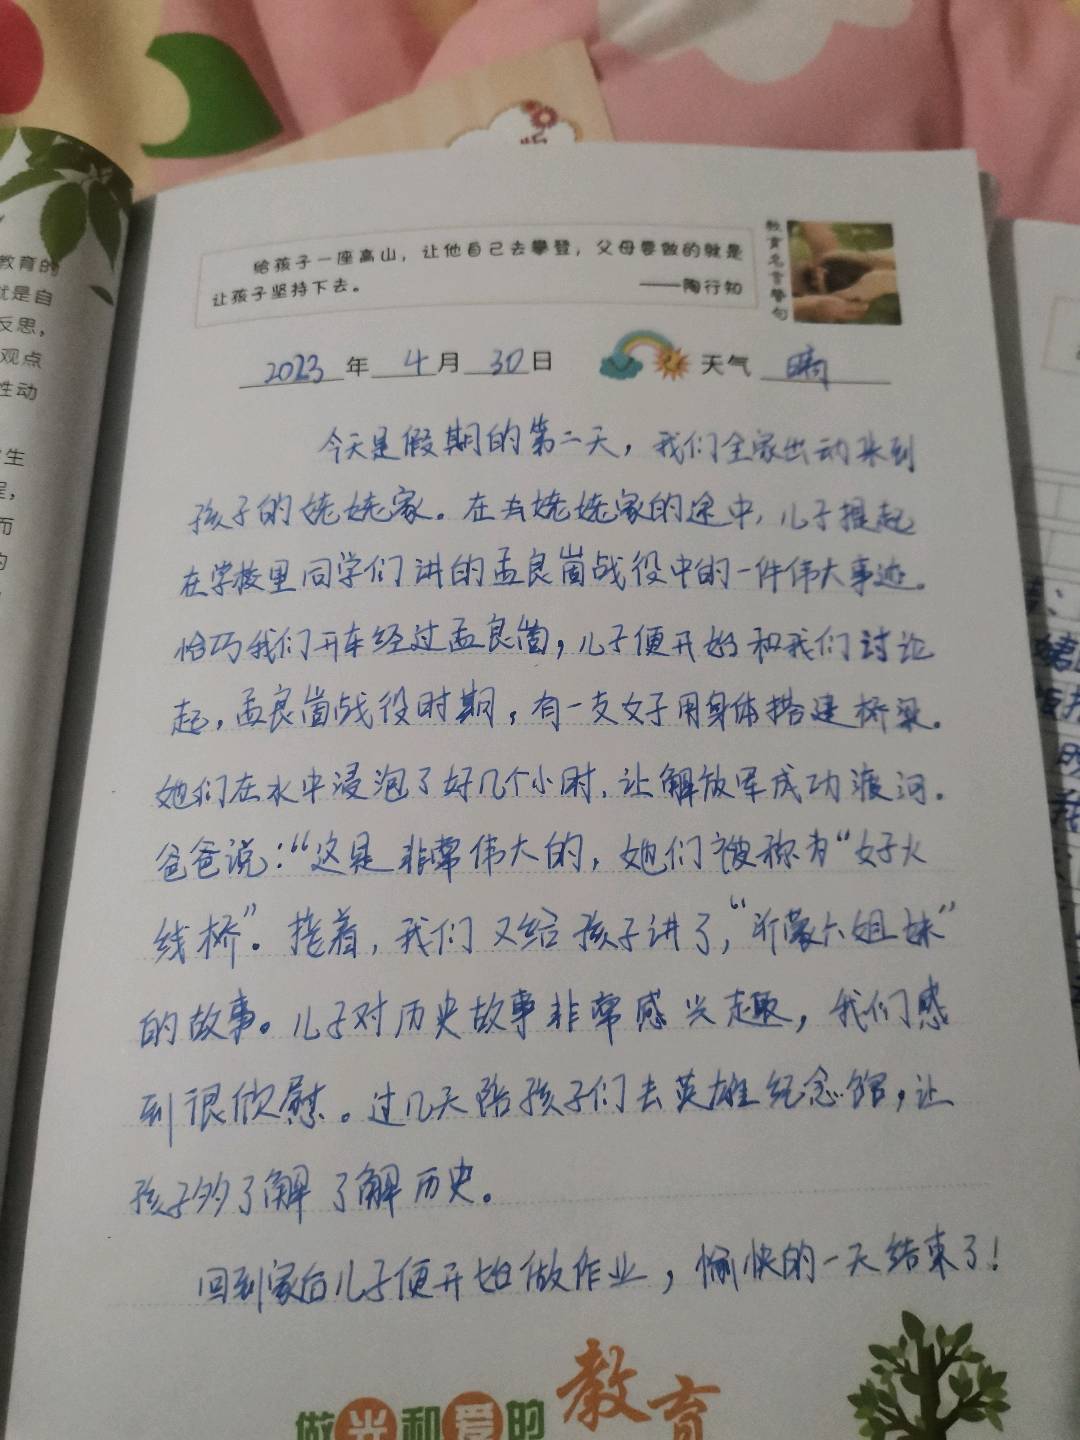 给孩子一座高山，让他自己去攀登，父母要做的就是
让孩子坚持下去。 ——陶行知
教育名言警句
2023年 4月 30日 天气 晴
今天是假期的第二天，我们全家出动来到
孩子的姥姥家。在去姥姥家的途中，儿子提起
在学校里同学们讲的孟良崮战役中的一件伟大事迹。
恰巧我们开车经过孟良崮，儿子便开始和我们讨论
起，孟良崮战役时期，有一支女子用身体搭建桥梁。
她们在水中浸泡了好几个小时，让解放军成功渡河。
爸爸说：“这是非常伟大的，她们被称为“女子火
线桥”。接着，我们又给孩子讲了，“沂蒙六姐妹”
的故事。儿子对历史故事非常感兴趣，我们感
到很欣慰。过几天陪孩子们去英雄纪念馆，让
孩子多了解了解历史。
回到家后儿子便开始做作业，愉快的一天结束了！
做光和爱的教育
教育的
就是自
反思，
观点
性动
生
程，
而
的